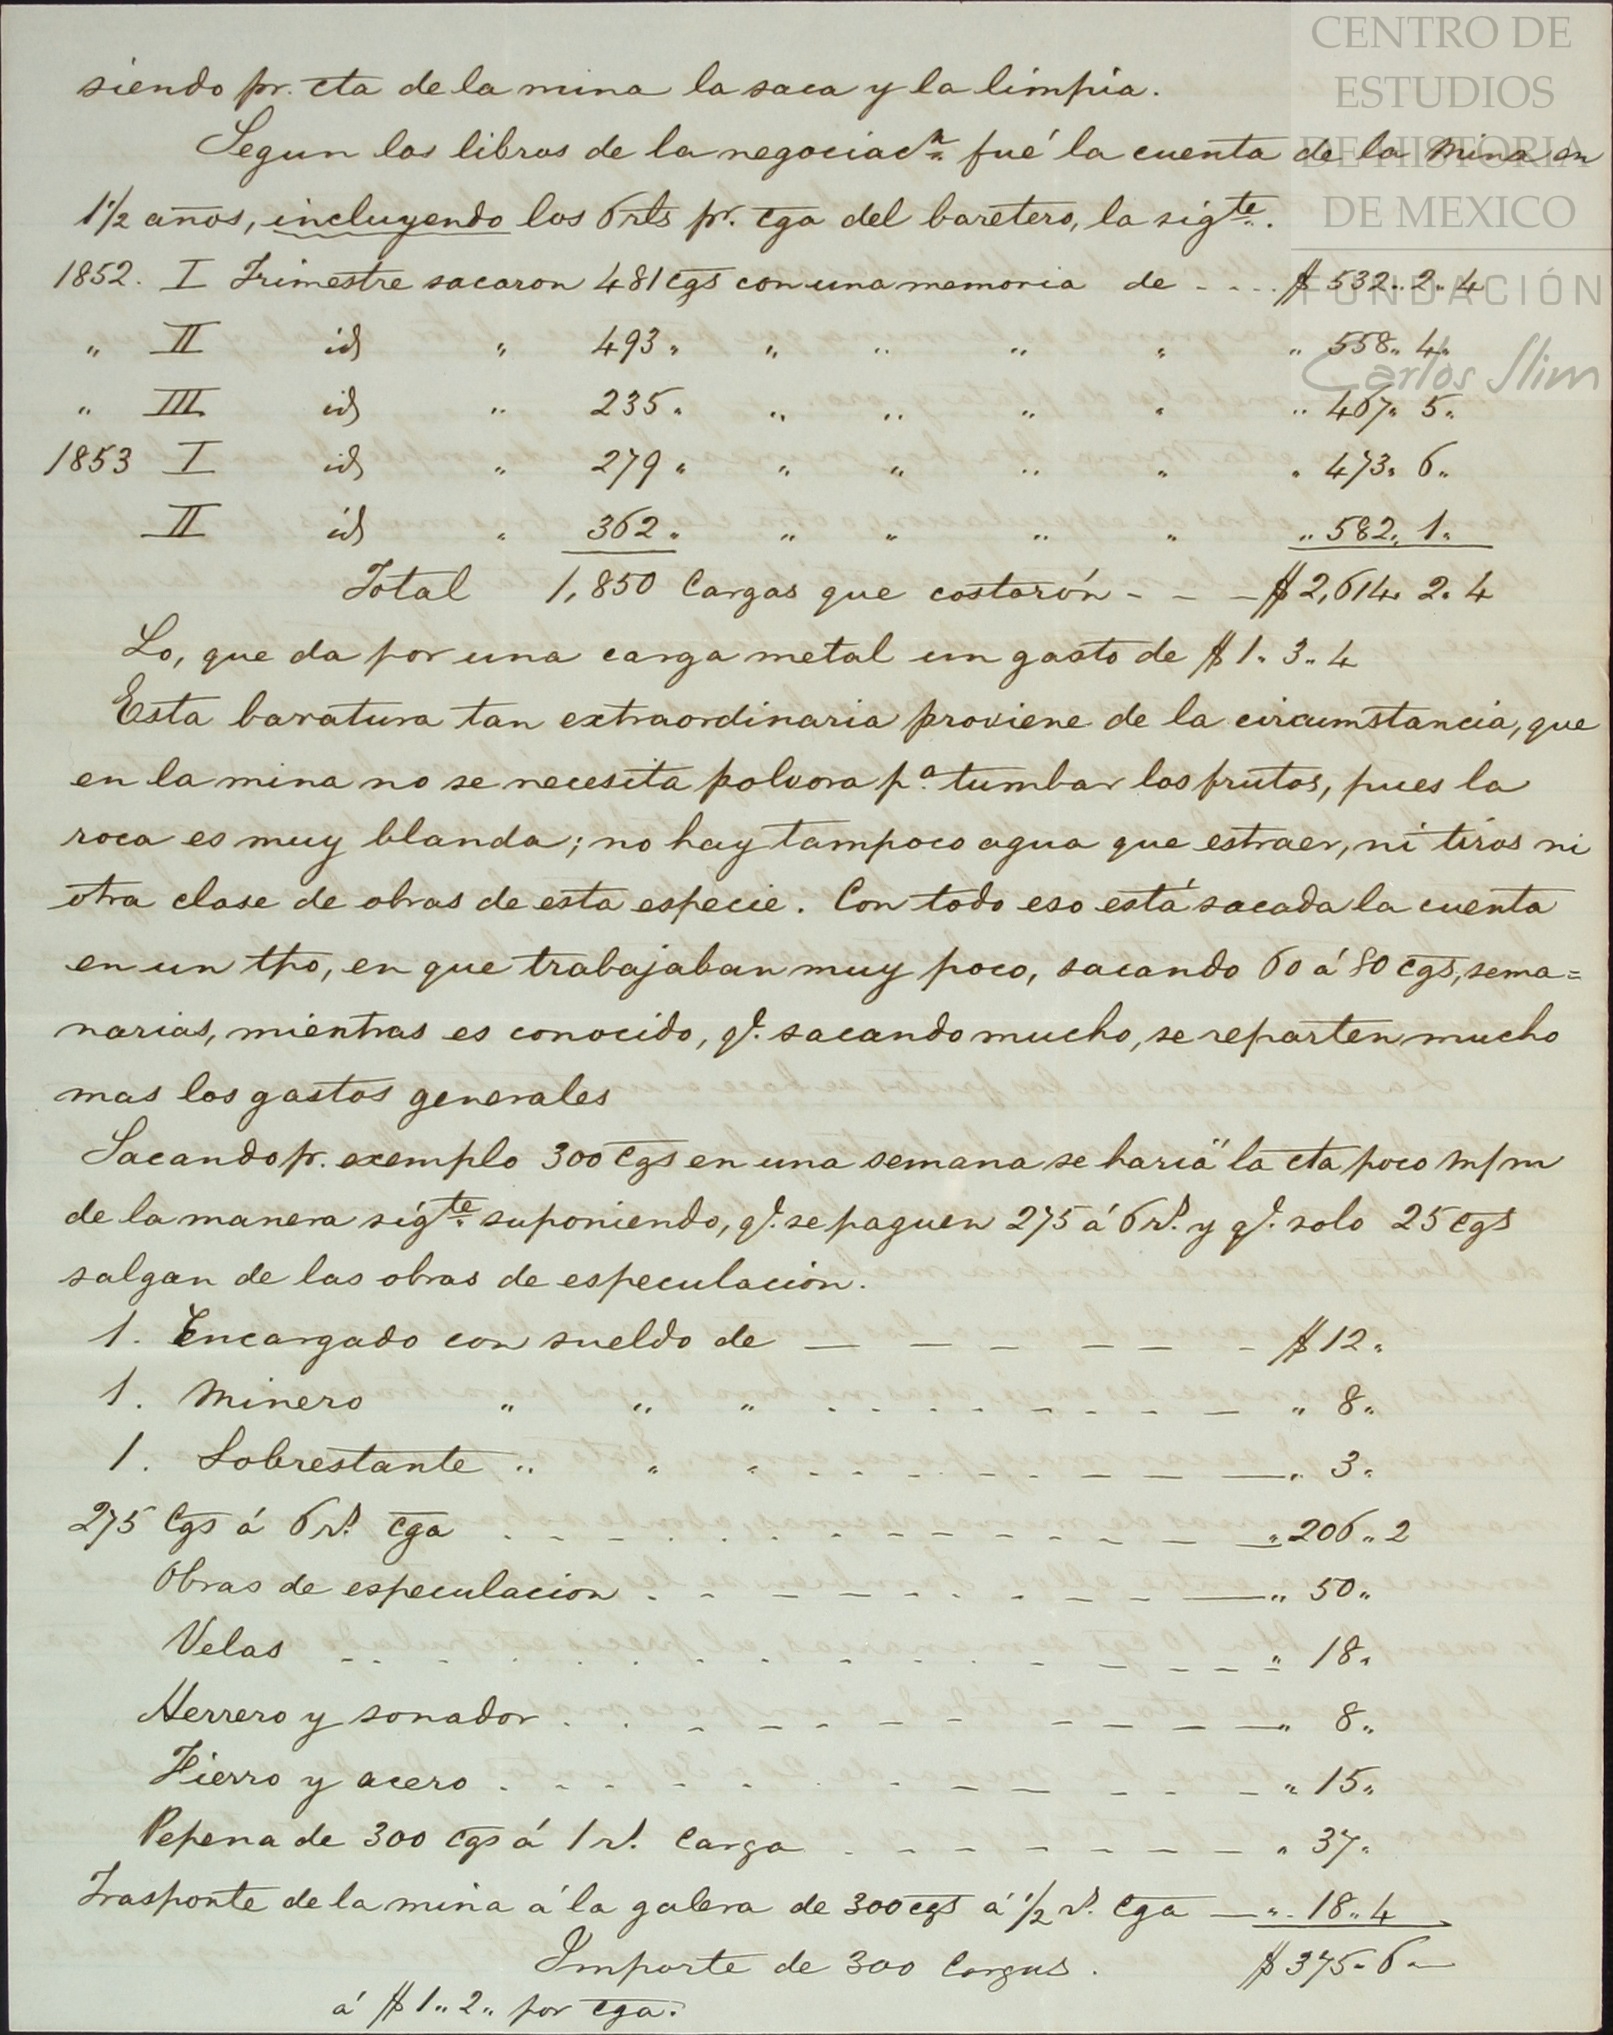 CENTRO DE
ESTUDIOS
DE HISTORIA
DE MEXICO
FUNDACIÓN
Carlos Slim
siendo pr. cta de la mina la saca y la limpia.
Segun los libros de la negociacn fué la cuenta de la Mina en
1 1/2 años, incluyendo los 6 rls pr. cga del baretero, la sigte.
1852. I Trimestre sacaron 481 cgs con una memoria de - . . . $ 532.. 2.. 4
" II id " 493 " " " " " " 558.. 4..
" III id " 235 " " " " " " 467.. 5..
1853 I id " 279 " " " " " " 473.. 6..
II id " 362 " " " " " " 582.. 1..
Total 1,850 Cargas que costarón - - - $ 2,614. 2. 4
Lo, que da por una carga metal un gasto de $ 1.. 3.. 4
Esta baratura tan extraordinaria proviene de la circumstancia, que
en la mina no se necesita polvora pa. tumbar los frutos, pues la
roca es muy blanda; no hay tampoco agua que estraer, ni tiros ni
otra clase de obras de esta especie. Con todo eso está sacada la cuenta
en un tpo, en que trabajaban muy poco, sacando 60 á 80 cgs, sema=
narias, mientras es conocido, q. sacando mucho, se reparten mucho
mas los gastos generales
Sacando pr. exemplo 300 Cgs en una semana se haria la cta poco m/m
de la manera sigte. suponiendo, q. se paguen 275 á 6 rs. y q. solo 25 cgs
salgan de las obras de especulacion.
1. Encargado con sueldo de — — — — — - $ 12..
1. Minero " " " . . . . - - - - — " 8..
1. Sobrestante " " " . . - - - - — — " 3..
275 Cgs á 6 rs. cga . . - - . . . - - - — — " 206.. 2
Obras de especulacion . - - — — - . . - - — " 50..
Velas - . . . . . . . . - - - — — " 18..
Herrero y sonador . . - - - - - — — — " 8..
Fierro y acero . - - - - . . - — — - - " 15..
Pepena de 300 cgs á 1 rl. Carga . - - - - - — " 37..
Trasporte de la mina á la galera de 300 cgs á 1/2 rl. cga — " 18.. 4
Importe de 300 Cargas . $ 375.. 6..
á $ 1.. 2.. por cga.